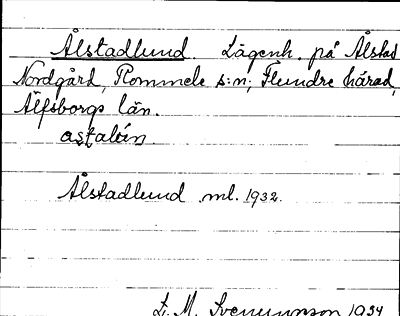 Ålstadlund Lägenh. på Ålstad
Nordgård, Rommele s:n, Flundre härad,
Älfsborgs län.
Ålstadlund ml. 1932.
L. M. Svenunnson 1934